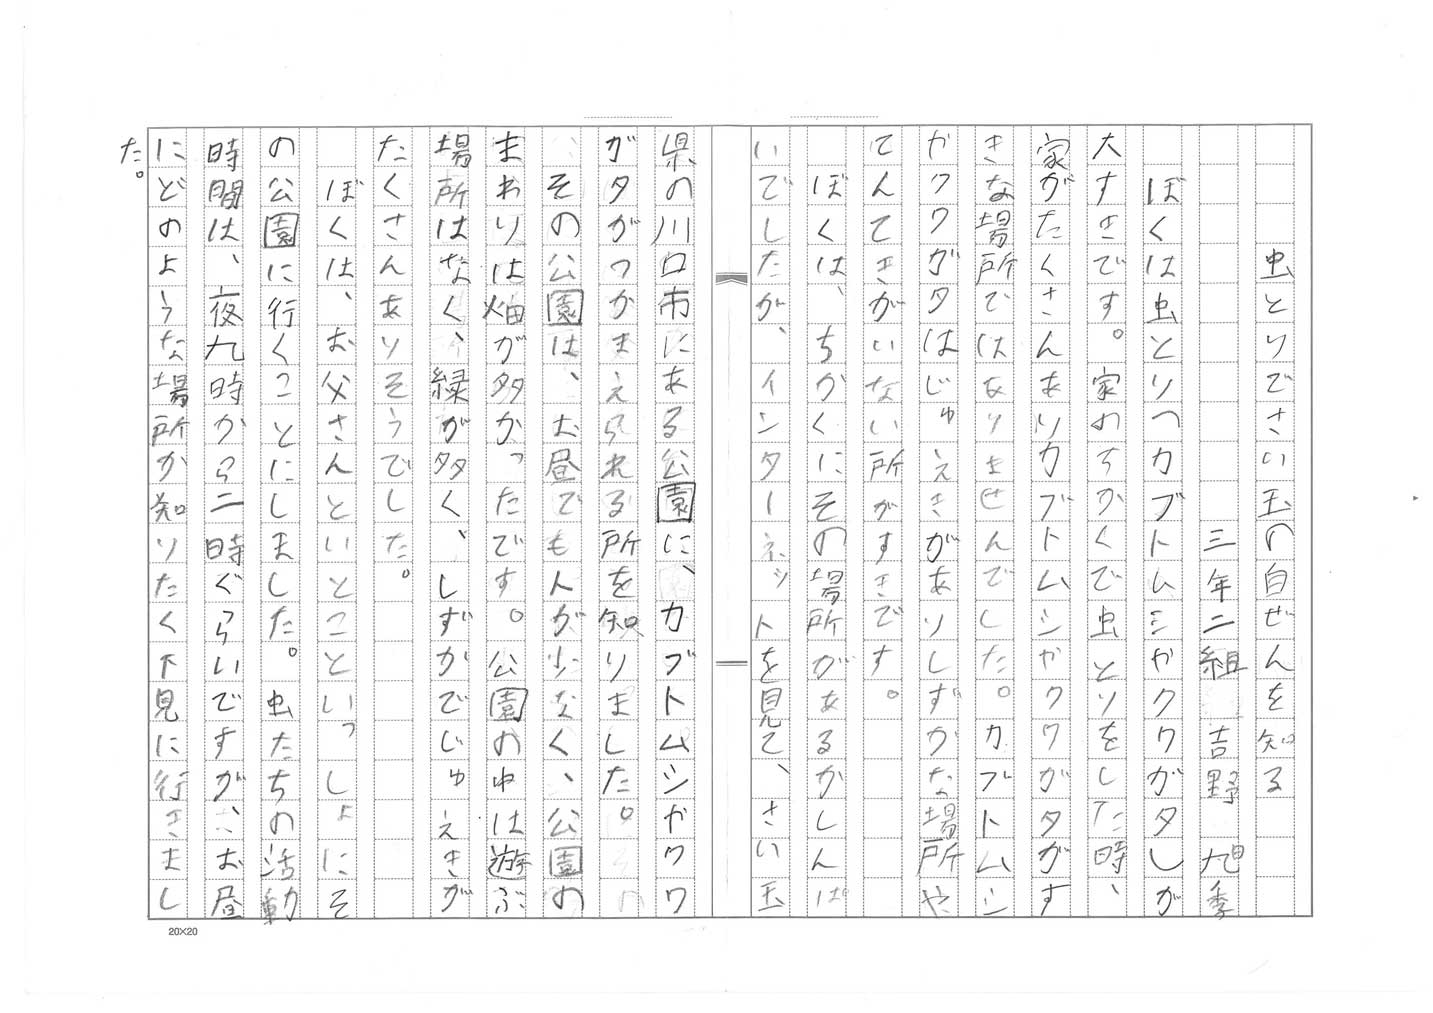 虫とりでさい玉の自ぜんを知る
三年二組 吉野 旭季
ぼくは虫とりつカブトムシやクワガタしが
大すきです。家のちかくで虫とりをした時、
家がたくさんありカブトムシやクワガタがす
きな場所ではありませんでした。カブトムシ
やクワガタはじゅえきがありしずかな場所や
てんてきがいない所がすきです。
ぼくは、ちかくにその場所があるかしんぱ
いでしたが、インターネットを見て、さい玉
県の川口市にある公園に、カブトムシやクワ
ガタがつかまえられる所を知りました。
その公園は、お昼でも人が少なく、公園の
まわりは畑が多かったです。公園の中は遊ぶ
場所はなく、緑が多く、しずかでじゅえきが
たくさんありそうでした。
ぼくは、お父さんといとこといっしょにそ
の公園に行くことにしました。虫たちの活動
時間は、夜九時から二時ぐらいですが、お昼
にどのような場所か知りたく下見に行きまし
た。
20×20